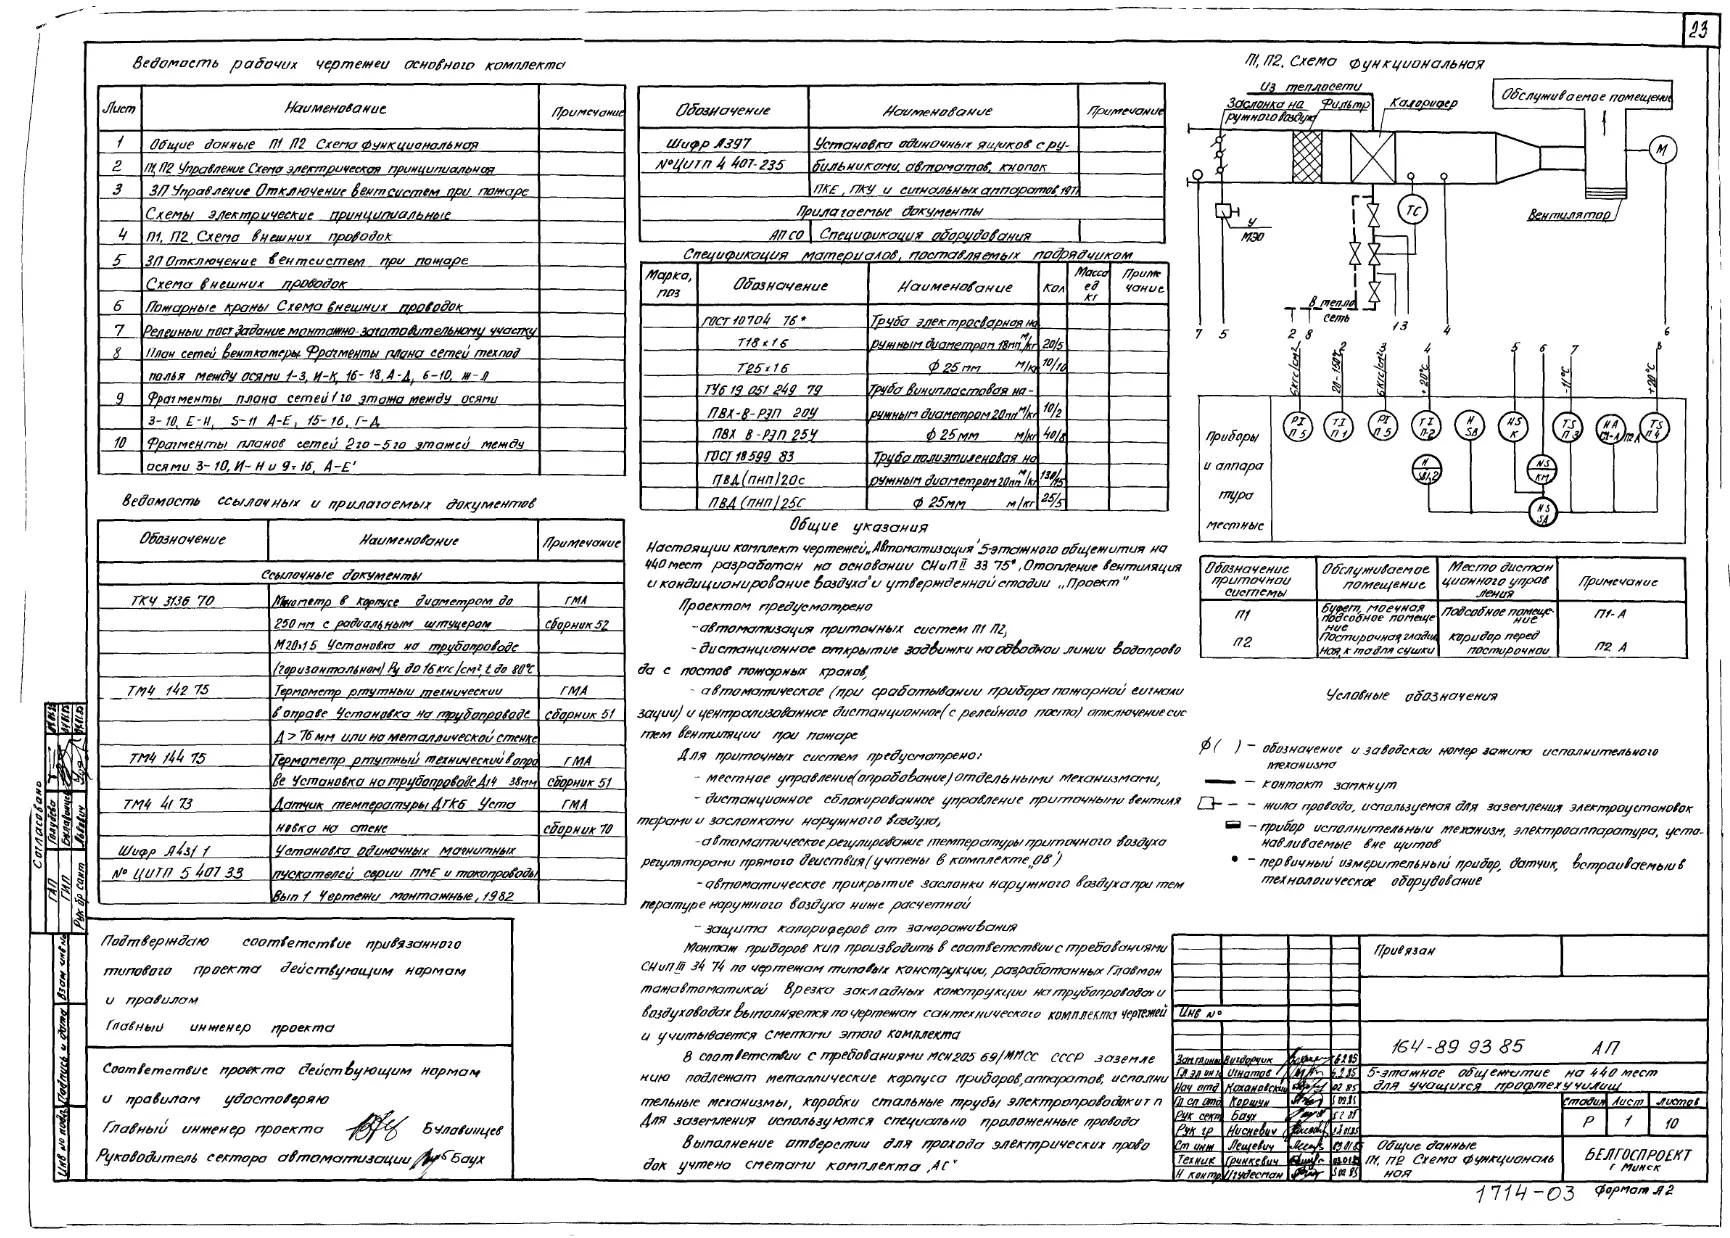 23
Ведомость рабочих чертежей основного комплекта
Лист Наименование Примечание
1 Общие данные П1 П2 Схема функциональная
2 П1, П2 Управление Схема электрическая принципиальная
3 ЗП Управление Отключение вентсистем при пожаре
Схемы электрические принципиальные
4 П1, П2 Схема внешних проводок
5 ЗП Отключение вентсистем при пожаре
Схема внешних проводок
6 Пожарные краны Схема внешних проводок
7 Релейный пост Задание монтажно-заготовительному участку
8 План сетей венткамеры Фрагменты плана сетей техпод
полья между осями 1-3, И-К, 16-18, А-Д, 6-10, Ж-Л
9 Фрагменты плана сетей 1го этажа между осями
3-10, Е-Н, 5-11 А-Е, 15-16, Г-Д
10 Фрагменты планов сетей 2го-5го этажей между
осями 3-10, И-Н и 9-16, А-Е'
Ведомость ссылочных и прилагаемых документов
Обозначение Наименование Примечание
Ссылочные документы
ТКЧ 3136 70 Манометр в корпусе диаметром до ГМА
250 мм с радиальным штуцером сборник 52
М20х1 5 Установка на трубопроводе
(горизонтальном) Ру до 16 кгс/см², t до 80°С
ТМ4 142 75 Термометр ртутный технический ГМА
в оправе Установка на трубопроводе сборник 51
Д > 76 мм или на металлической стенке
ТМ4 144 75 Термометр ртутный технический в опра ГМА
ве Установка на трубопроводе Д14 38мм сборник 51
ТМ4 41 73 Датчик температуры ДТКБ Уста ГМА
новка на стене сборник 70
Шифр А431 1 Установка одиночных магнитных
№ ЦИТП 5 407 33 пускателей серии ПМЕ и токопроводы
Вып 1 Чертежи монтажные, 1982
Подтверждаю соответствие привязанного
типового проекта действующим нормам
и правилам
Главный инженер проекта
Соответствие проекта действующим нормам
и правилам удостоверяю
Главный инженер проекта Булавинцев
Руководитель сектора автоматизации Баух
Согласовано
ГАП Голубева
ГИП Булавинцев
Рук бр сант Львович
Взам инв №
Подпись и дата
Инв № подл
Обозначение Наименование Примечание
Шифр А397 Установка одиночных ящиков с ру-
№ ЦИТП 4 407-235 бильниками, автоматов, кнопок
ПКЕ, ПКУ и сигнальных аппаратов, 1977
Прилагаемые документы
АП СО Спецификация оборудования
Спецификация материалов, поставляемых подрядчиком
Марка, поз Обозначение Наименование Кол Масса ед кг Приме чание
ГОСТ 10704 76* Труба электросварная на
Т18х1 6 ружным диаметром 18мм м/кг 20/5
Т25х1 6 ф 25 мм м/кг 10/10
ТУ6 19 051 249 79 Труба винипластовая на-
ПВХ-В-РЭП 20У ружным диаметром 20мм м/кг 10/2
ПВХ В-РЭП 25У ф 25 мм м/кг 40/8
ГОСТ 18599 83 Труба полиэтиленовая на
ПВД(ПНП)20с ружным диаметром 20мм м/кг 130/15
ПВД(ПНП)25С ф 25мм м/кг 25/5
Общие указания
Настоящий комплект чертежей „Автоматизация" 5-этажного общежития на
440 мест разработан на основании СНиП II 33 75*, „Отопление вентиляция
и кондиционирование воздуха" и утвержденной стадии „Проект"
Проектом предусмотрено
- автоматизация приточных систем П1 П2,
- дистанционное открытие задвижки на обводной линии водопрово
да с постов пожарных кранов,
- автоматическое (при срабатывании прибора пожарной сигнали
зации) и централизованное дистанционное (с релейного поста) отключение сис
тем вентиляции при пожаре
Для приточных систем предусмотрено:
- местное управление (опробование) отдельными механизмами,
- дистанционное сблокированное управление приточными вентиля
торами и заслонками наружного воздуха,
- автоматическое регулирование температуры приточного воздуха
регуляторами прямого действия (учтены в комплекте „ОВ")
- автоматическое прикрытие заслонки наружного воздуха при тем
пературе наружного воздуха ниже расчетной
- защита калориферов от замораживания
Монтаж приборов КИП производить в соответствии с требованиями
СНиП III 34 74 по чертежам типовых конструкций, разработанных Главмон
тажавтоматикой Врезка закладных конструкций на трубопроводах и
воздуховодах выполняется по чертежам сантехнического комплекта чертежей
и учитывается сметами этого комплекта
В соответствии с требованиями МСН205 69/ММСС СССР заземле
нию подлежат металлические корпуса приборов, аппаратов, исполни
тельные механизмы, коробки стальные трубы электропроводок и т п
Для заземления используются специально проложенные провода
Выполнение отверстий для прохода электрических прово
док учтено сметами комплекта „АС"
П1, П2. Схема функциональная
Из теплосети
Заслонка на наружного воздуха Фильтр Калорифер Обслуживаемое помещение
М
ТС
У
МЭО
Вентилятор
В тепло
сеть
7 5 2 8 1 3 4 6
6кгс/см² 20-150°С 6кгс/см² +20°С -11°С +20°С
2 4 5 6 7 8
Приборы и аппара тура местные
PI П5 TI П1 PI П5 TI П2 H SB HS K TS П3 HA П2А TS П4
H SB1,2 NS КМ HS SA
Обозначение приточной системы Обслуживаемое помещение Место дистан ционного управ ления Примечание
П1 Буфет, моечная подсобное помеще ние Подсобное помеще- ние П1-А
П2 Постирочная, гладиль ная, к та для сушки Коридор перед постирочной П2 А
Условные обозначения
ф( ) - обозначение и заводской номер зажима исполнительного
механизма
- контакт замкнут
- жила провода, используемая для заземления электроустановок
- прибор исполнительный механизм, электроаппаратура, уста-
навливаемые вне щитов
- первичный измерительный прибор, датчик, встраиваемый в
технологическое оборудование
Привязан
Инв №
164-89 93 85 АП
5-этажное общежитие на 440 мест
для учащихся профтехучилищ
Зам главн Вигдорчик
Гл эл инж Игнатов
Нач отд Кахановский
Гл сп отд Коршун
Рук сект Баух
Рук гр Нисневич
Ст инж Лещевич
Техник Гринкевич
Н контр Чудесман
Стадия Лист Листов
Р 1 10
Общие данные
П1, П2 Схема функциональ
ная
БЕЛГОСПРОЕКТ
г Минск
1714-03 Формат А2